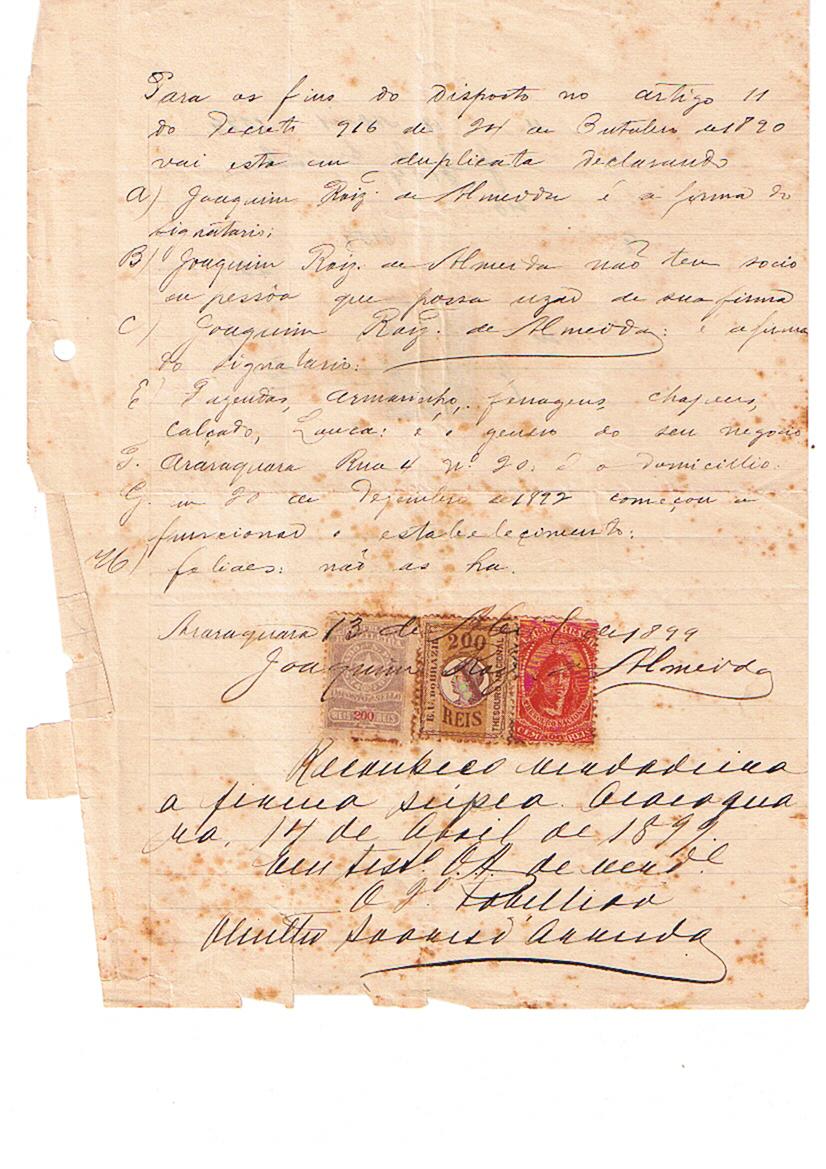 Para os fins do disposto no artigo 11
do Decreto 916 de 24 de Outubro de 1890
vai esta em duplicata declarando
A) Joaquim Roiz. de Almeida é a firma do
signatario;
B) Joaquim Roiz. de Almeida não tem socio
ou pessôa que possa uzar de sua firma
C) Joaquim Roiz. de Almeida: é a firma
do signatario:
E Fazendas, Armarinho, ferragens, chapeus,
calçado, Louca: é o genero do seu negocio
F. Araraquara Rua 4 nº 20: é o domicillio:
G. em 20 de Dezembro de 1892 começou a
funcionar o estabeleçimento:
H) feliaes: não as ha.
Araraquara 13 de Abril de 1899
Joaquim Roiz de Almeida
REIS 200 REIS
200
E.U. DO BRAZIL
THESOURO NACIONAL
REIS
THESOURO NACIONAL
CEM 100 REIS
Reconheco verdadeira
a firma supra. Araraqua
ra, 14 de Abril de 1899.
Em testº. de verdº.
O Tabellião
Arruda